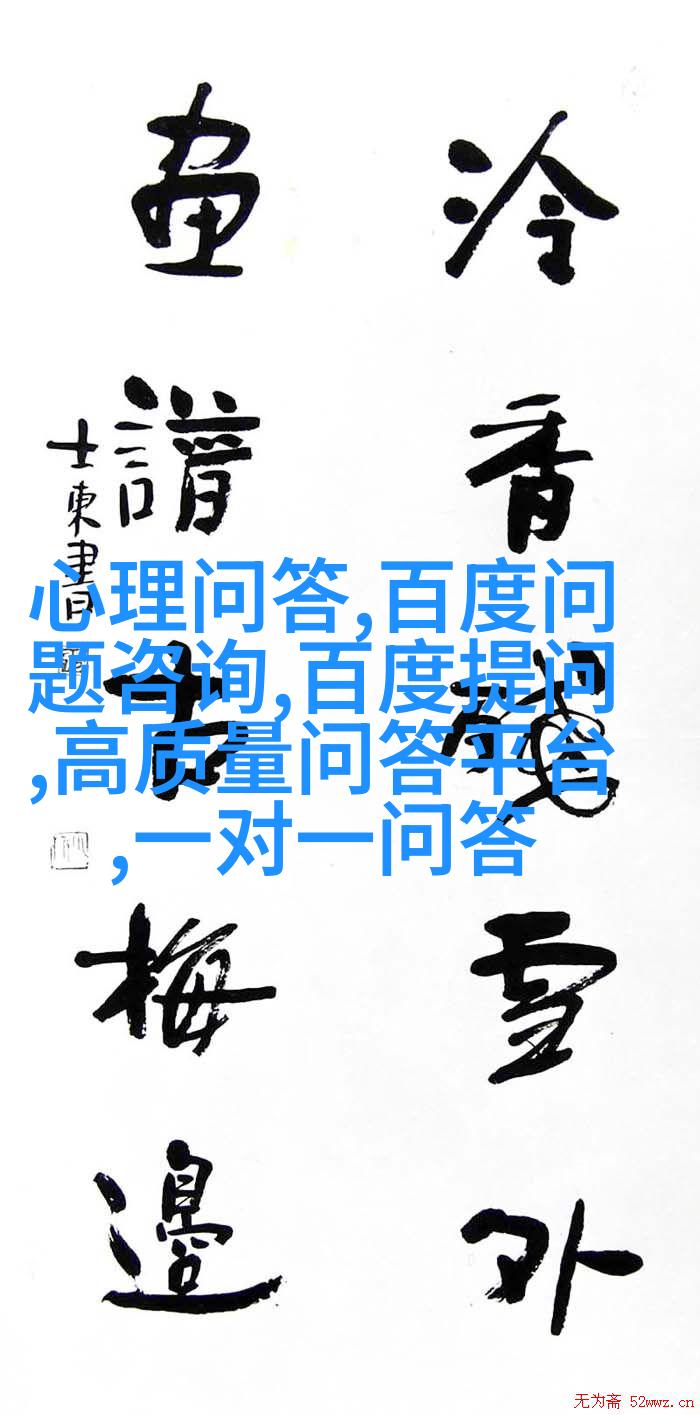 泠香雪外
畫譜古梅邊
士東書
心理问答,百度问
题咨询,百度提问
,高质量问答平台
,一对一问答
无为斋 52wwz.cn